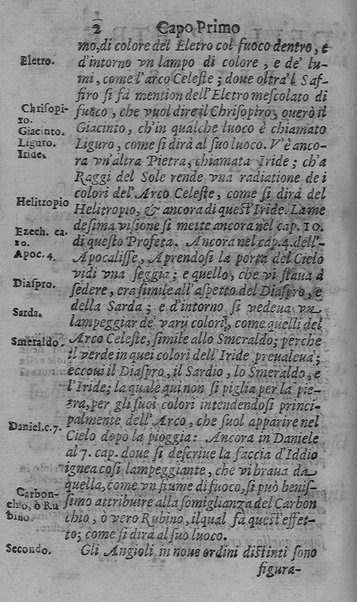 2 Capo Primo
mo, di colore del Eletro col fuoco dentro, e
Eletro.
d'intorno vn lampo di colore, e de' lu-
mi, come l'arco Celeste; doue oltra'l Saf-
firo si fà mention dell'Eletro mescolato di
Chrisopi-
ro.
fuoco, che vuol dire il Chrisopiro, querò il
Giacinto.
Giacinto, ch'in qualche luoco è chiamato
Liguro.
Liguro, come si dirà al suo luoco. V'è anco-
Iride.
ra vn'altra Pietra, chiamata Iride; ch'a
Raggi del Sole rende vna radiatione de i
colori dell'Arco Celeste, come si dirà del
Helitropio
Helitropio, & ancora di quest'Iride. La me
Ezech. ca.
10.
desima visione si mette ancora nel cap. 10.
di questo Profeta. Ancora nel cap. 4. dell'-
Apoc. 4.
Apocalisse, Aprendosi la porta del Cielo
vidi vna seggia; e quello, che vi staua à
Diaspro.
sedere, era simile all'aspetto del Diaspro, e
Sarda.
della Sarda; e d'intorno si vedeua vn
lampeggiar de varij colori, come quelli del
Smeraldo.
Arco Celeste, simile allo Smeraldo; perche
il verde in quei colori dell'Iride preualeua;
eccoui il Diaspro, il Sardio, lo Smeraldo, e
l'Iride; la quale qui non si piglia per la pie-
tra, per gli suoi colori intendendosi princi-
palmente dell'Arco, che suol apparire nel
Daniel. c. 7.
Cielo dopo la pioggia: Ancora in Daniele
al 7. cap. doue si descriue la faccia d'Iddio
ignea così lampeggiante, che vibraua da
quella, come vn fiume di fuoco, si può benis-
Carbon-
chio, ò Ru
bino.
simo attribuire alla somiglianza del Carbon
chio, ò vero Rubino, il qual fà quest'effet-
to; come si dirà al suo luoco.
Secondo.
Gli Angioli in noue ordini distinti sono
figura-